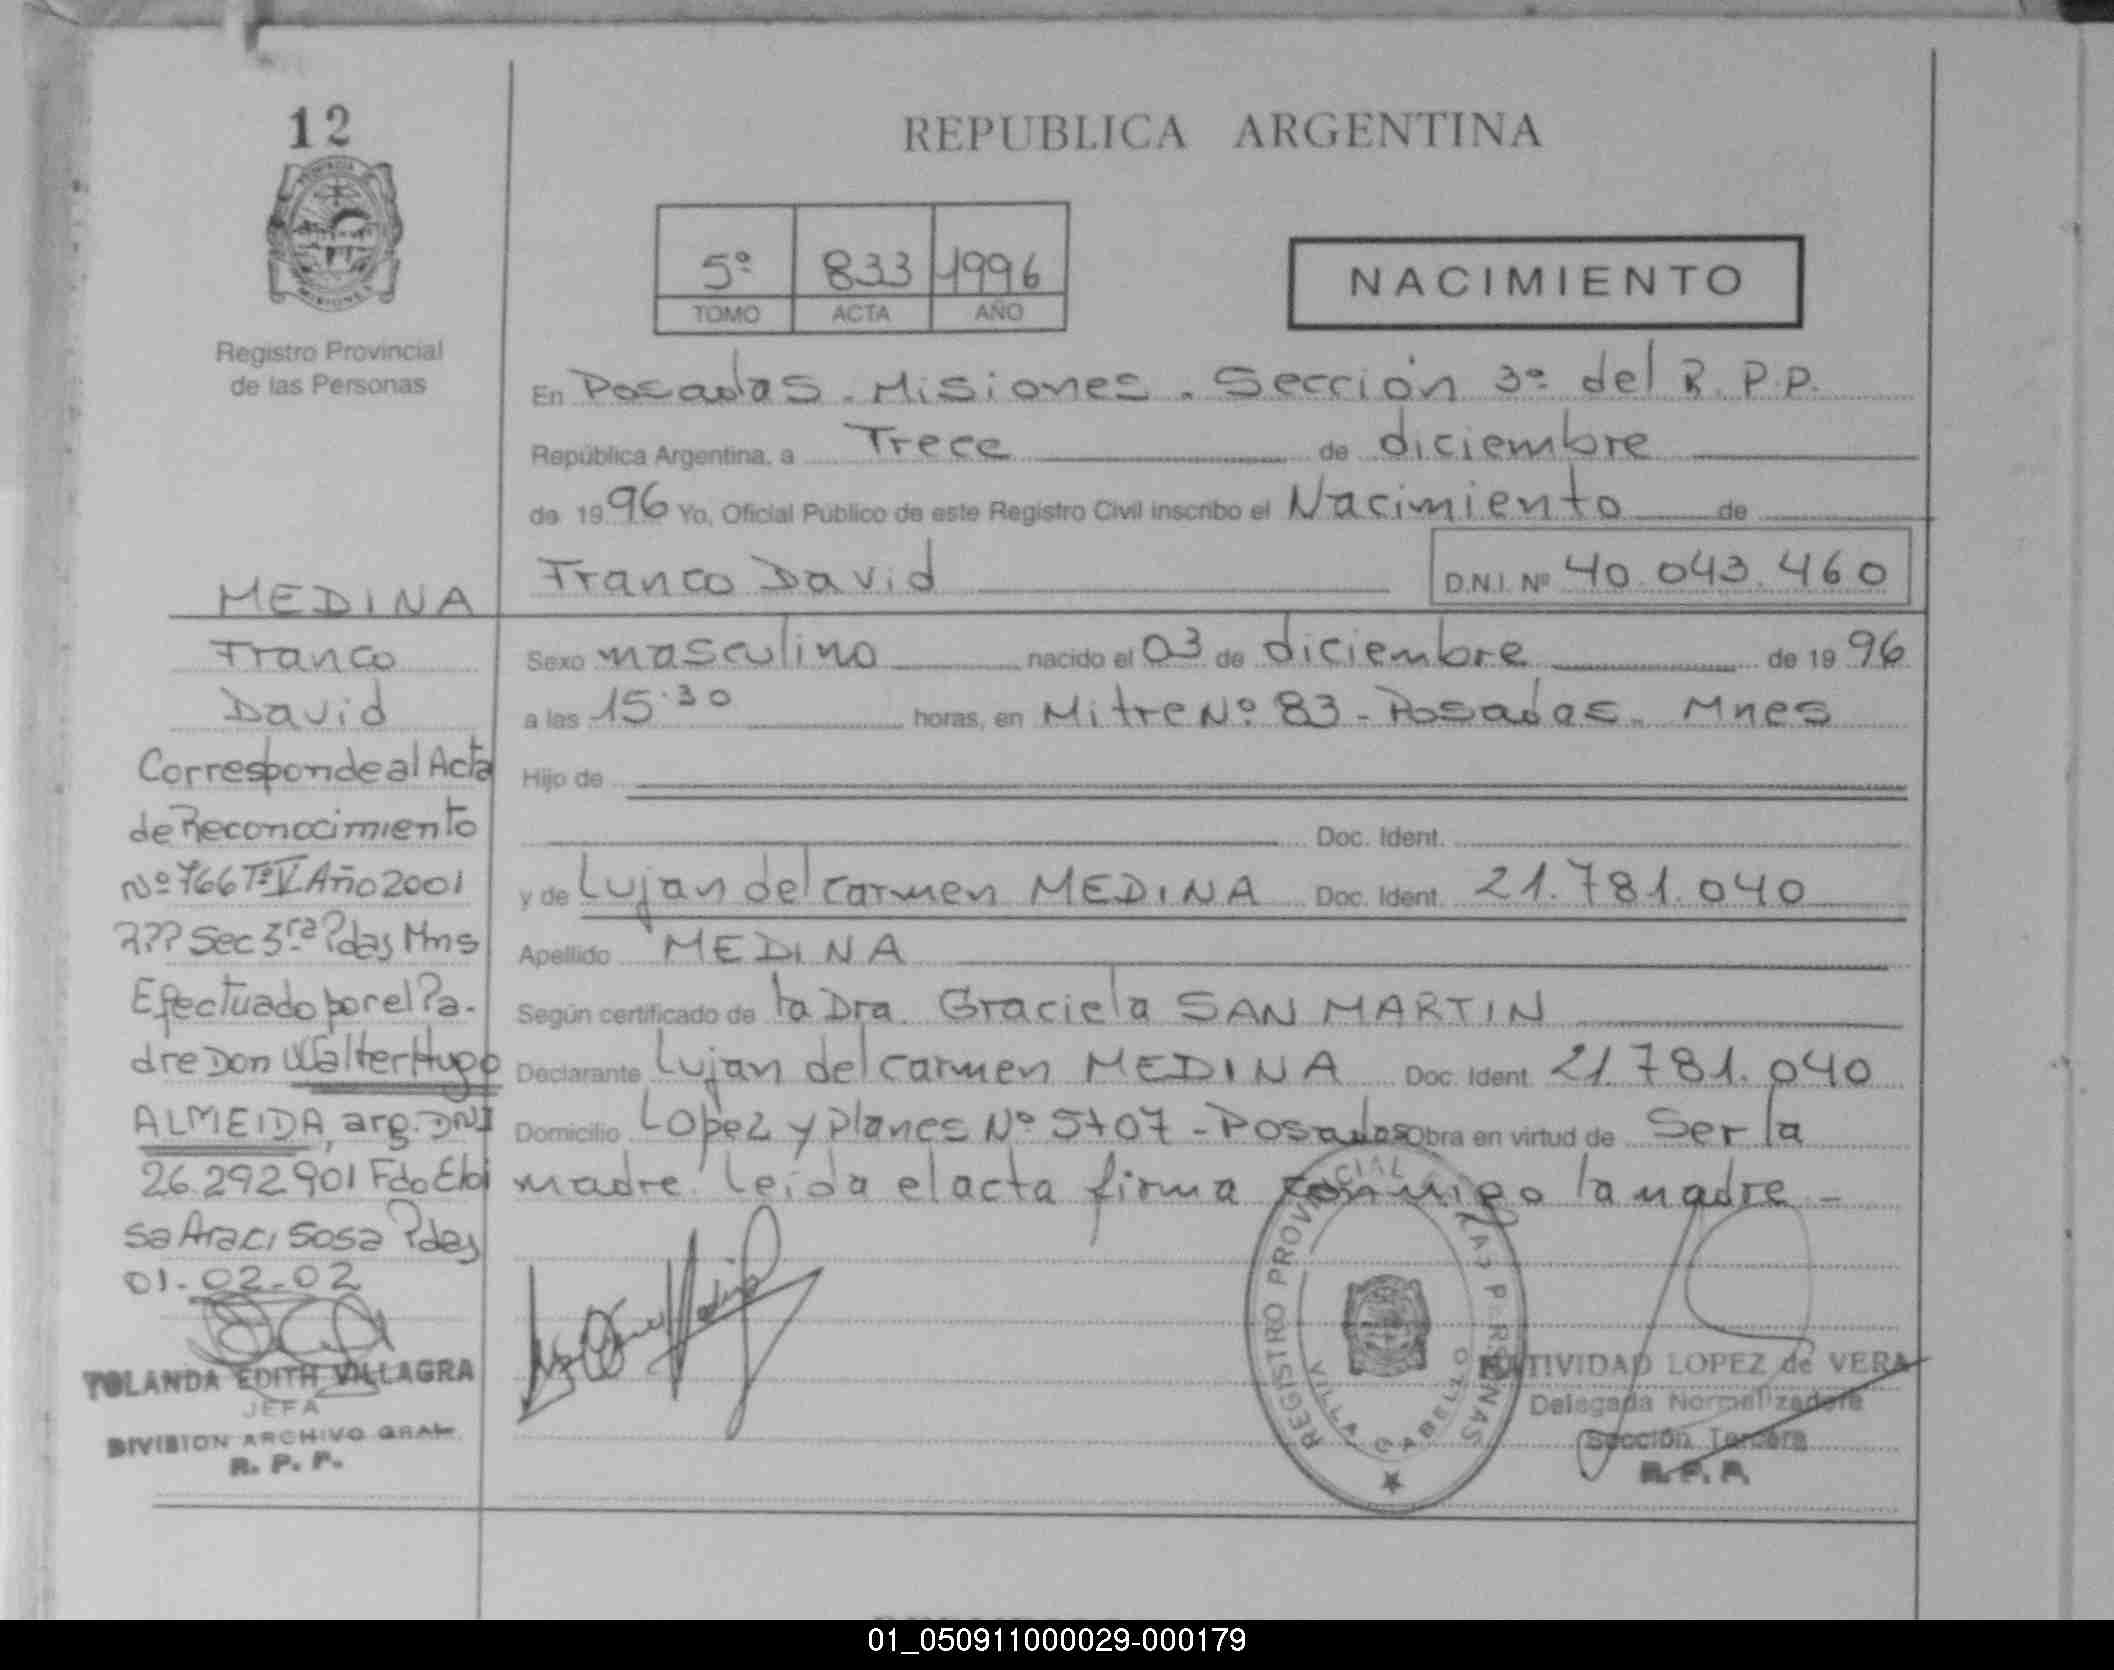 12
REPUBLICA ARGENTINA
5º 833 1996
TOMO ACTA AÑO
NACIMIENTO
Registro Provincial
de las Personas
En Posadas - Misiones. Sección 3º del R.P.P.
República Argentina, a Trece de diciembre
de 1996 Yo, Oficial Público de este Registro Civil inscribo el Nacimiento de
Franco David D.N.I. Nº 40.043.460
Sexo masculino nacido el 03 de diciembre de 1996
a las 15:30 horas, en Mitre Nº 83 - Posadas - Mnes
Hijo de
Doc. Ident.
y de Lujan del carmen MEDINA Doc. Ident. 21.781.040
Apellido MEDINA
Según certificado de la Dra. Graciela SAN MARTIN
Declarante Lujan del carmen MEDINA Doc. Ident. 21.781.040
Domicilio Lopez y Planes Nº 5707 - Posadas Obra en virtud de Ser la
madre. leida el acta firma conmigo la madre -
MEDINA
Franco
David
Corresponde al Acta
de Reconocimiento
Nº 766 Tº V Año 2001
Sec 3ra Pdas Mns
Efectuado por el Pa-
dre Don Walter Hugo
ALMEIDA, arg. DNI
26.292.901 Fdo Eloi
sa Araci Sosa Pdas
01-02-02
YOLANDA EDITH VILLAGRA
JEFA
DIVISION ARCHIVO GRAL.
R. P. P.
REGISTRO PROVINCIAL DE LAS PERSONAS
VILLA CABELLO
NATIVIDAD LOPEZ de VERA
Delegada Normalizadora
Sección Tercera
R. P. P.
01_050911000029-000179